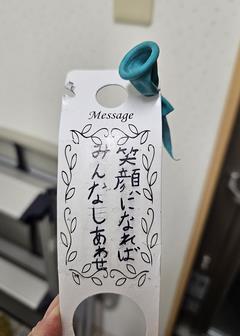 Message
笑顔になれば
みんなしあわせ